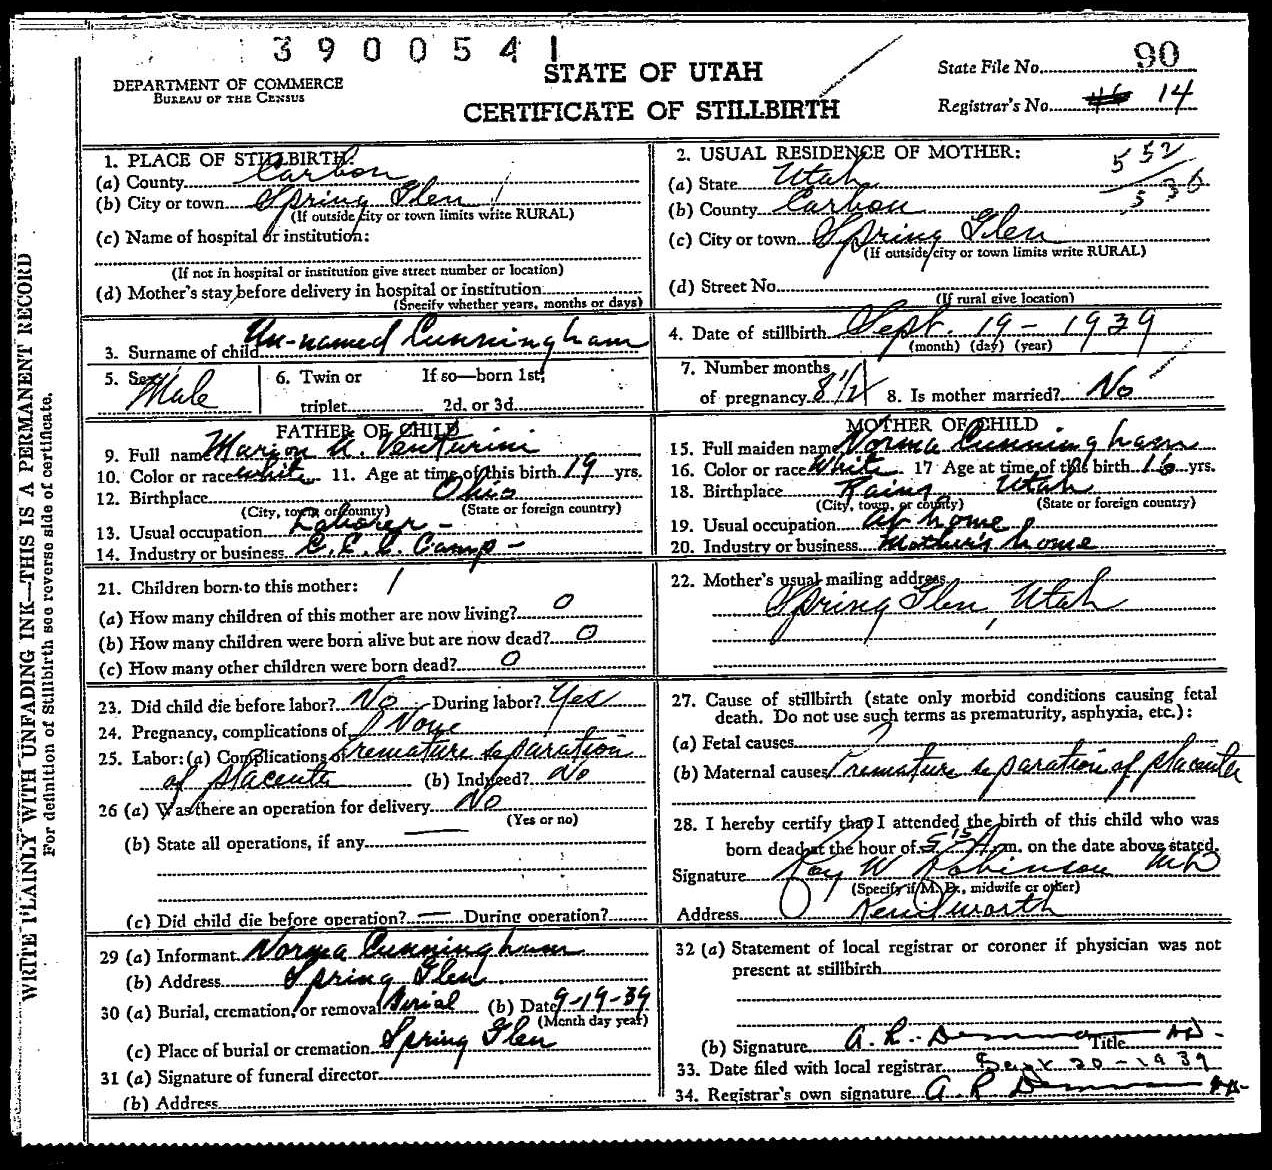 3900541
DEPARTMENT OF COMMERCE
BUREAU OF THE CENSUS
STATE OF UTAH
CERTIFICATE OF STILLBIRTH
State File No. 90
Registrar's No. 14
WRITE PLAINLY WITH UNFADING INK—THIS IS A PERMANENT RECORD
For definition of Stillbirth see reverse side of certificate.
1. PLACE OF STILLBIRTH:
(a) County Carbon
(b) City or town Spring Glen
(If outside city or town limits write RURAL)
(c) Name of hospital or institution:
(If not in hospital or institution give street number or location)
(d) Mother's stay before delivery in hospital or institution
(Specify whether years, months or days)
2. USUAL RESIDENCE OF MOTHER:
552
536
(a) State Utah
(b) County Carbon
(c) City or town Spring Glen
(If outside city or town limits write RURAL)
(d) Street No.
(If rural give location)
3. Surname of child Un-named Cunningham
4. Date of stillbirth Sept. 19 - 1939
(month) (day) (year)
5. Sex Male
6. Twin or triplet If so—born 1st, 2d. or 3d
7. Number months of pregnancy 8 1/2
8. Is mother married? No
FATHER OF CHILD
9. Full name Marion A. Venturini
10. Color or race white 11. Age at time of this birth 19 yrs.
12. Birthplace Ohio
(City, town or county) (State or foreign country)
13. Usual occupation Laborer -
14. Industry or business C.C.C. Camp -
MOTHER OF CHILD
15. Full maiden name Norma Cunningham
16. Color or race White 17 Age at time of this birth 16 yrs.
18. Birthplace Rains Utah
(City, town, or county) (State or foreign country)
19. Usual occupation at home
20. Industry or business Mother's home
21. Children born to this mother: 1
(a) How many children of this mother are now living? 0
(b) How many children were born alive but are now dead? 0
(c) How many other children were born dead? 0
22. Mother's usual mailing address
Spring Glen, Utah
23. Did child die before labor? No During labor? Yes
24. Pregnancy, complications of None
25. Labor: (a) Complications of Premature separation
of placenta (b) Induced? No
26 (a) Was there an operation for delivery No
(Yes or no)
(b) State all operations, if any
(c) Did child die before operation? During operation?
27. Cause of stillbirth (state only morbid conditions causing fetal
death. Do not use such terms as prematurity, asphyxia, etc.):
(a) Fetal causes ?
(b) Maternal causes Premature separation of placenta
28. I hereby certify that I attended the birth of this child who was
born dead at the hour of 5:15 A.m. on the date above stated.
Signature Roy W Robinson MD
(Specify if M. D., midwife or other)
Address Kenilworth
29 (a) Informant Norma Cunningham
(b) Address Spring Glen
30 (a) Burial, cremation, or removal Burial (b) Date 9-19-39
(Month day year)
(c) Place of burial or cremation Spring Glen
31 (a) Signature of funeral director
(b) Address
32 (a) Statement of local registrar or coroner if physician was not
present at stillbirth
(b) Signature A. R. Demman MD
Title
33. Date filed with local registrar Sept 20 - 1939
34. Registrar's own signature A R Demman MD